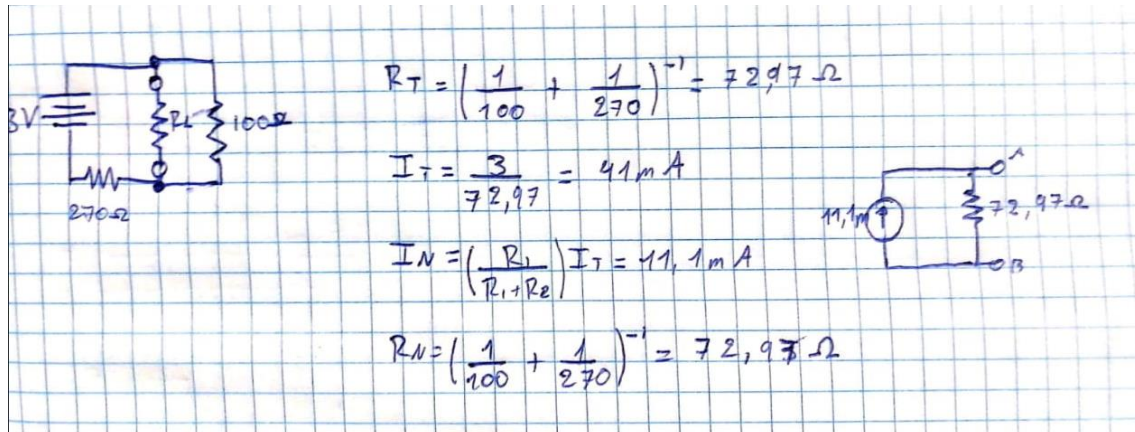 3V
RL
100Ω
270Ω
RT = (1/100 + 1/270)^-1 = 72,97 Ω
IT = 3/72,97 = 41mA
IN = (R1/(R1+R2)) IT = 11,1mA
RN = (1/100 + 1/270)^-1 = 72,97 Ω
A
11,1m
72,97Ω
B